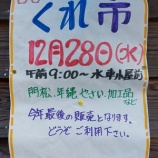 くれ市
12月28日(水)
午前9:00〜水車小屋前
門松、年縄、やさい、加工品
など
今年最後の販売となります。
どうぞご利用下さい。